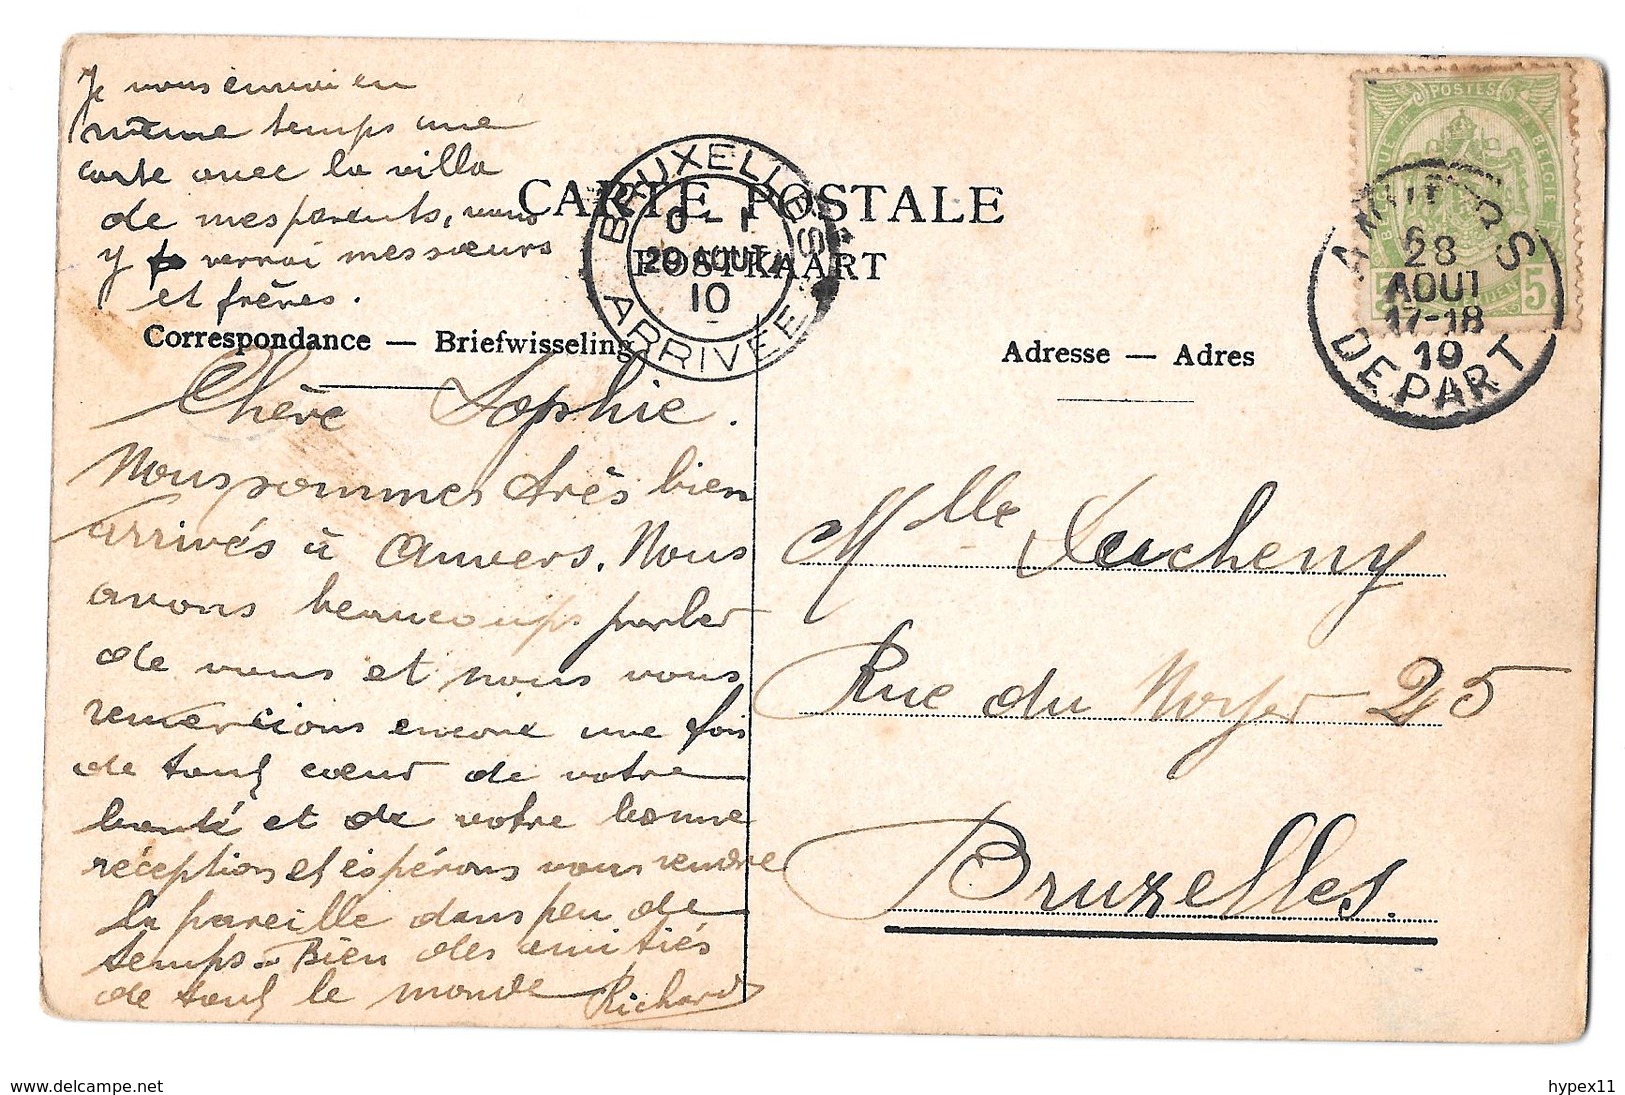 Je vous envoi en
même temps une
carte avec la villa
de mes parents, vous
y verrai mes sœurs
et frères.
CARTE POSTALE
POSTKAART
Correspondance — Briefwisseling
Adresse — Adres
BRUXELLES
29 AOUT
10
ARRIVEE
POSTES
BELGIQUE
BELGIE
5
ANVERS
6
28
AOUT
17-18
10
DEPART
Chère Sophie.
Nous sommes très bien
arrivés à Anvers. Nous
avons beaucoups parler
de vous et nous vous
remercions encore une fois
de tout cœur de votre
bonté et de votre bonne
réception et éspérons vous rendre
la pareille dans peu de
temps. Bien des amitiés
de tout le monde Richard
Mlle Ducheny
Rue du Noyer 25
Bruxelles.
www.delcampe.net
hypex11